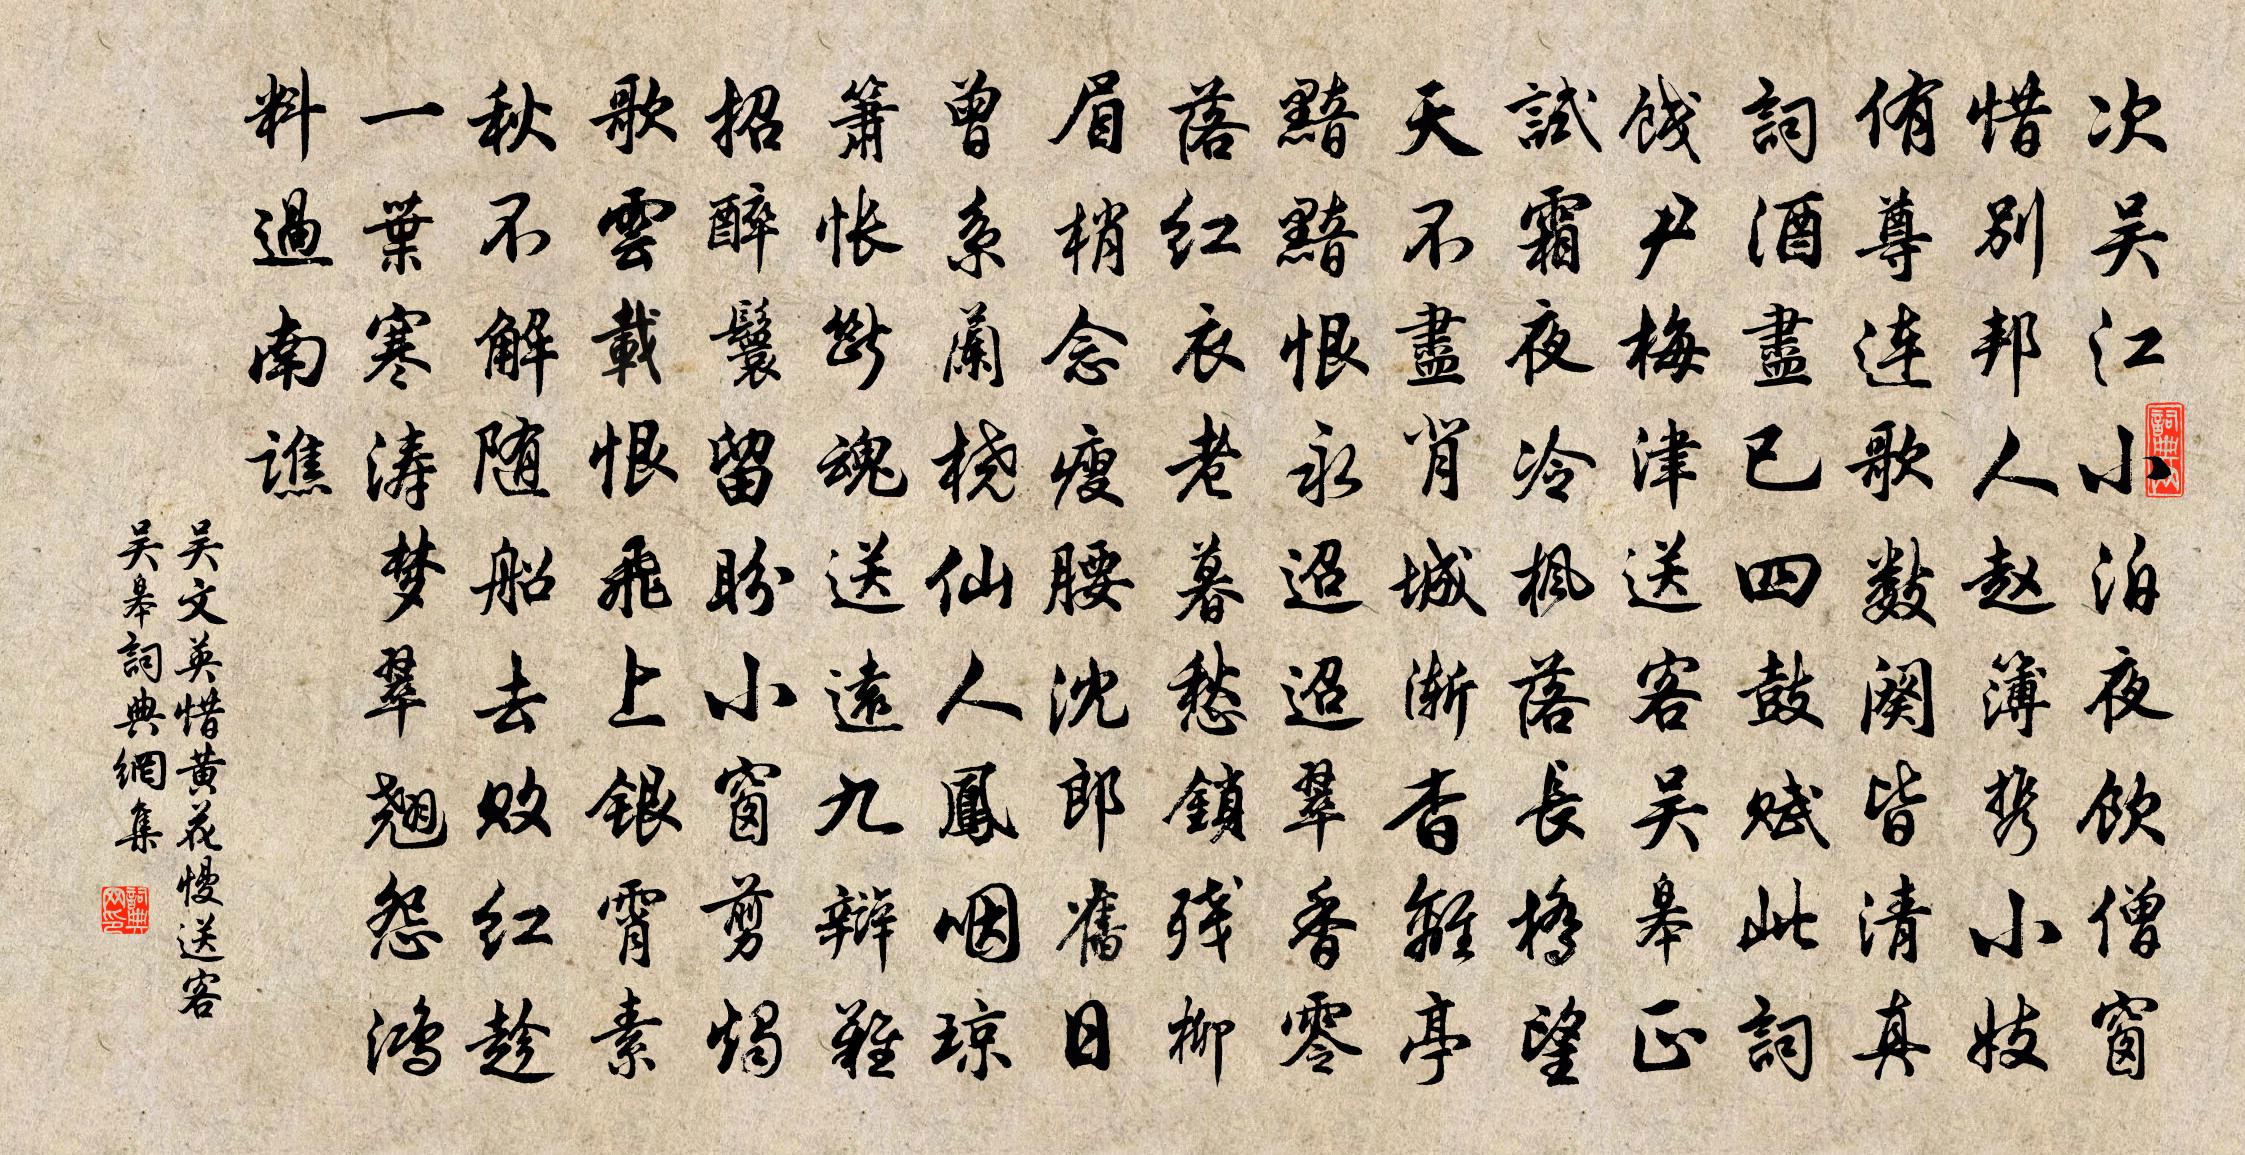 次吴江小泊夜饮僧窗
惜别邦人赵簿携小妓
侑尊连歌数阕皆清真
詞酒盡已四鼓赋此詞
饯尹梅津送客吴皋正
試霜夜冷枫落長橋望
天不盡背城渐杳離亭
黯黯恨永迢迢翠香零
落红衣老暮愁鎖残柳
眉梢念瘦腰沈郎舊日
曾系蘭桡仙人鳳咽琼
簫怅断魂送遠九辯難
招醉鬟留盼小窗剪燭
歌雲載恨飛上銀霄素
秋不解随船去败红趁
一葉寒涛梦翠翘怨鸿
料過南譙
吴文英惜黄花慢送客
吴皋詞典網集
詞典网
詞典网印